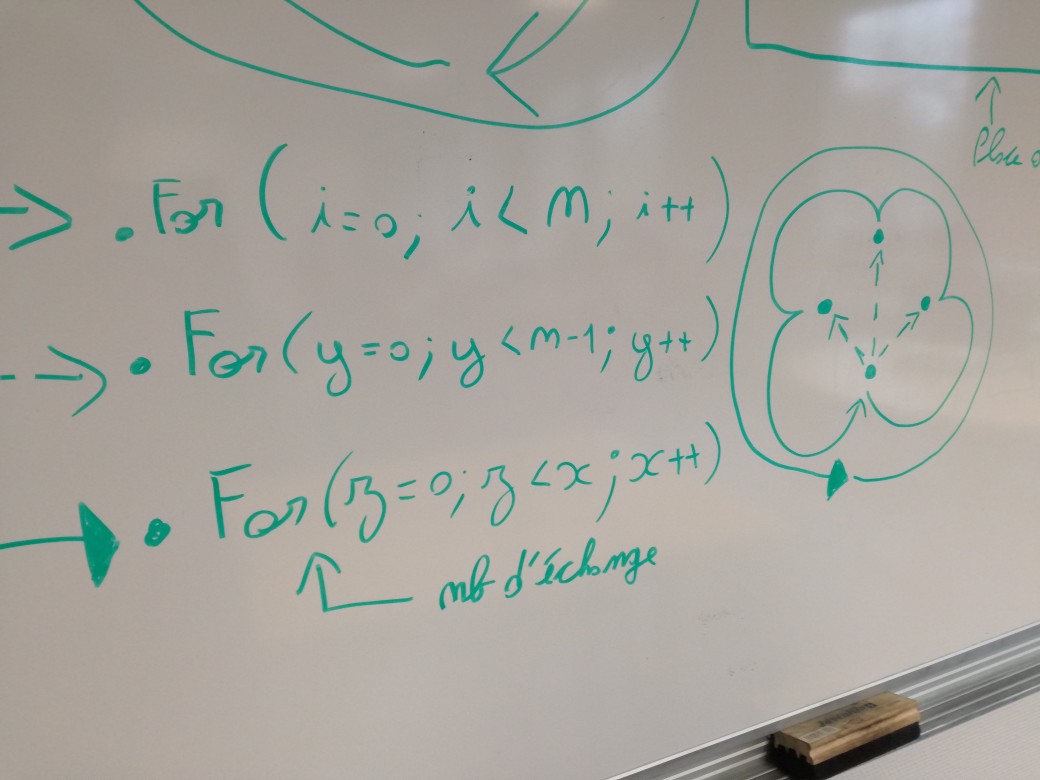 • For ( i=0; i< n; i++ )
• For ( y=0; y <n-1; y++ )
• For ( z=0; z <x; x++ )
nb d'échange